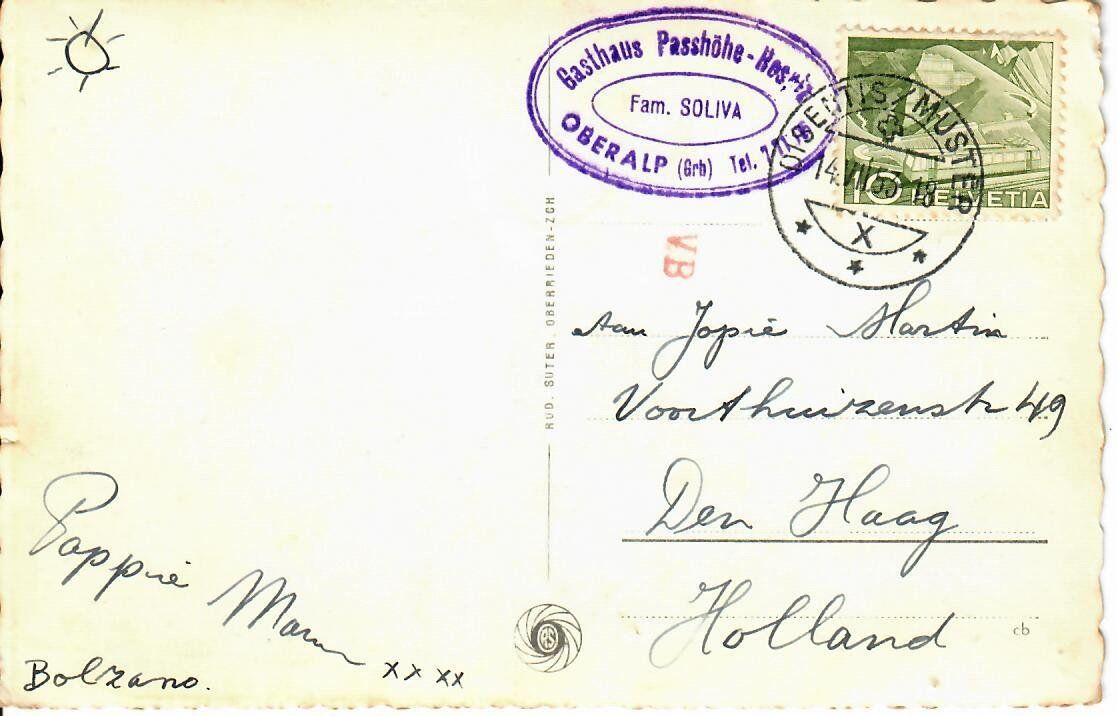 Gasthaus Passhöhe-Hospiz
Fam. SOLIVA
OBERALP (Grb) Tel.
DISENTIS/MUSTER
14.VII.53-18
X
10 HELVETIA
VB
RUD. SUTER, OBERRIEDEN-ZCH
Aan Jopie Martin
Voorthuizenstr 49
Den Haag
Holland
cb
Pappie Mam
xx xx
Bolzano.